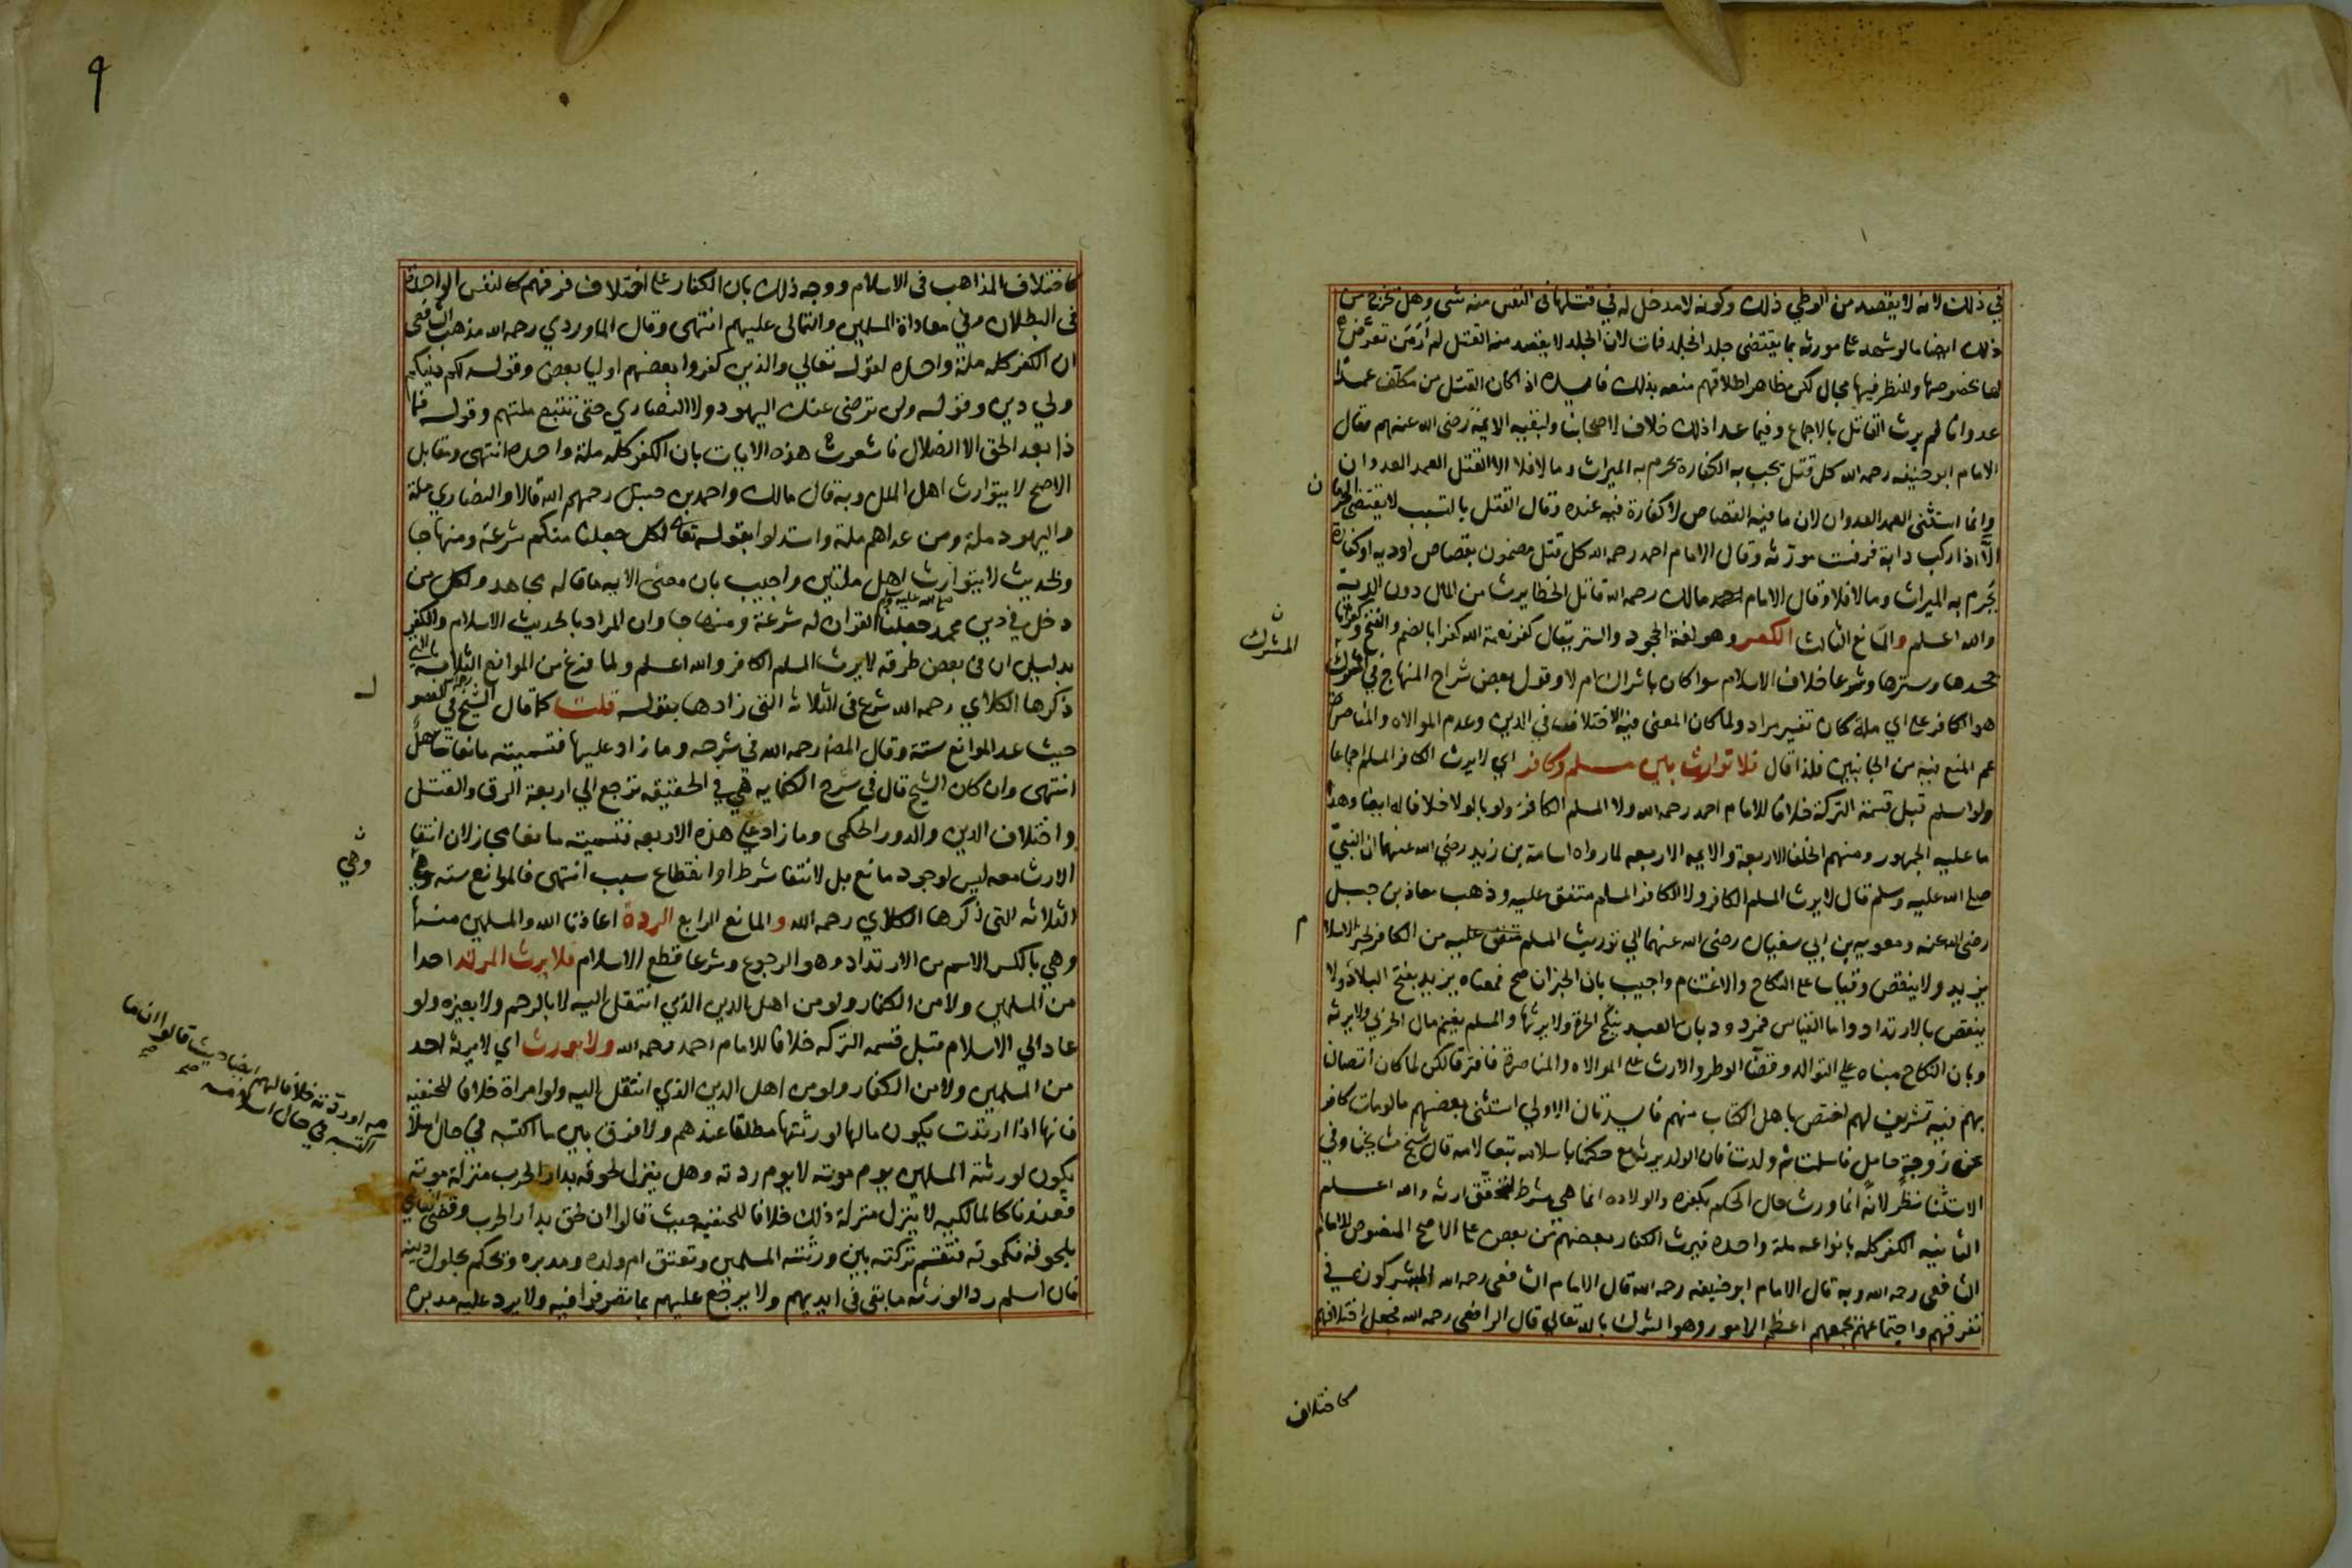 في ذلك لانه لا يقصد من الوطي ذلك وكونه لا مدخل له في قتلها في النفس منه شي وهل يخرج من
ذلك ايضا ما لو شهد على مورثه بما يقتضي جلد الجلد فمات لان الجلد لا يقصد منه القتل لم ار من تعرض
لها بخصوصها وللنظر فيها مجال لكن ظاهر اطلاقهم منعه بذلك فايده اذا كان القتل من مكلف عمدا
عدوانا لم يرث القاتل بالاجماع وفيما عدا ذلك خلاف لاصحابنا ولبقية الايمة رضي الله عنهم فقال
الامام ابو حنيفه رحمه الله كل قتل يجب به الكفارة يحرم به الميراث وما لا فلا الا القتل العمد العدوان
وانما استثنى العمد العدوان لان ما فيه القصاص لا كفارة فيه عنده وقال القتل بالتسبب لا يقتضي الحرمان
الا اذا ركب دابة فرفست مورثه وقال الامام احمد رحمه الله كل قتل مضمون بقصاص او ديه او كفارة
يحرم به الميراث وما لا فلا وقال الامام مالك رحمه الله قاتل الخطا يرث من المال دون الدية
والله اعلم والمانع الثالث الكفر وهو لغة الجحود والستر يقال كفر نعمة الله كفرا بالضم والفتح وكفرانا
جحدها وسترها وشرعا خلاف الاسلام سوا كان باشراك ام لا وقول بعض شراح المنهاج في
المشرك
هو الكافر على اي ملة كان تفسير مراد ولما كان المعنى فيه الاختلاف في الدين وعدم الموالاه والمناصرة
عم المنع فيه من الجانبين فلذا قال فلا توارث بين مسلم وكافر اي لا يرث الكافر المسلم اجماعا
ولو اسلم قبل قسمة التركة خلافا للامام احمد رحمه الله ولا المسلم الكافر ولو بالولا خلافا له ايضا وهذا
ما عليه الجمهور ومنهم الخلفا الاربعة والايمه الاربعه لما رواه اسامة بن زيد رضي الله عنهما ان النبي
صلى الله عليه وسلم قال لا يرث المسلم الكافر ولا الكافر المسلم متفق عليه وذهب معاذ بن جبل
رضي الله عنه ومعويه بن ابي سفيان رضي الله عنهما الي توريث المسلم من الكافر لخبر الاسلام
يزيد ولا ينقص وقياسا على النكاح والاغتنام واجيب بان الخبر ان صح فمعناه يزيد بفتح البلاد ولا
ينقص بالارتداد واما القياس فمردود بان العبد ينكح الحرة ولا يرثها والمسلم يغنم مال الحربي ولا يرثه
وبان النكاح مبناه على التوالد وقضا الوطر والارث على الموالاه والمناصرة فافترقا لكن لما كان اتصالنا
بهم فيه تشريف لهم اختص باهل الكتاب منهم فايدتان الاولي استثنى بعضهم ما لو مات كافر
عن زوجة حامل فاسلمت ثم ولدت فان الولد يرثه مع حكمنا باسلامه تبعا لامه قال شيخ مشايخنا وفي
الاستثنا نظر لانه انما ورث حال الحكم بكفره والولاده انما هي شرط لتحقق ارثه والله اعلم
الثانيه الكفر كله بانواعه ملة واحده فيرث الكفار بعضهم من بعض على الاصح المنصوص للامام
الشافعي رحمه الله وبه قال الامام ابو حنيفه رحمه الله قال الامام الشافعي رحمه الله المشركون في
تفرقهم واجتماعهم يجمعهم اعظم الامور وهو الشرك بالله تعالى قال الرافعي رحمه الله فجعل اختلافهم
كاختلاف
٩
كاختلاف المذاهب في الاسلام ووجه ذلك بان الكفار على اختلاف فرقهم كالنفس الواحدة
في البطلان وفي معاداة المسلمين والتمالي عليهم انتهى وقال الماوردي رحمه الله مذهب الشافعي
ان الكفر كله ملة واحده لقوله تعالي والذين كفروا بعضهم اوليا بعض وقوله لكم دينكم
ولي دين وقوله ولن ترضى عنك اليهود ولا النصاري حتى تتبع ملتهم وقوله فما
ذا بعد الحق الا الضلال فاشعرت هذه الايات بان الكفر كله ملة واحده انتهى ومقابل
الاصح لا يتوارث اهل الملل وبه قال مالك واحمد بن حنبل رحمهم الله قالا والنصاري ملة
واليهود ملة ومن عداهم ملة واستدلوا بقوله تعالى لكل جعلنا منكم شرعة ومنهاجا
وبحديث لا يتوارث اهل ملتين واجيب بان معنى الايه ما قاله مجاهد ولكل من
دخل في دين محمد صلى الله عليه وسلم جعلنا القران له شرعة ومنهاجا وان المراد بالحديث الاسلام والكفر
بدليل ان في بعض طرقه لا يرث المسلم الكافر والله اعلم ولما فرغ من الموانع الثلاثة التي
ذكرها الكلاي رحمه الله شرع في الثلاثة التي زادها بقوله قلت كما قال الشيخ في الفصول
حيث عد الموانع ستة وقال المص رحمه الله في شرحه وما زاد عليها فتسميته مانعا تساهل
انتهى وان كان الشيخ قال في شرح الكفايه هي في الحقيقه ترجع الي اربعة الرق والقتل
واختلاف الدين والدور الحكمي وما زاد على هذه الاربعه فتسميته مانعا مجاز لان انتفا
الارث معه ليس لوجود مانع بل لانتفا شرط او انقطاع سبب انتهى فالموانع سته وهي
وهي
الثلاثه التي ذكرها الكلاي رحمه الله والمانع الرابع الردة اعاذنا الله والمسلمين منها
وهي بالكسر الاسم من الارتداد وهو الرجوع وشرعا قطع الاسلام فلا يرث المرتد احدا
من المسلمين ولا من الكفار ولو من اهل الدين الذي انتقل اليه لا بالرحم ولا بغيره ولو
عاد الي الاسلام قبل قسمه التركه خلافا للامام احمد رحمه الله ولا يورث اي لا يرثه احد
من المسلمين ولا من الكفار ولو من اهل الدين الذي انتقل اليه ولو امراة خلافا للحنفيه
فانها اذا ارتدت يكون مالها لورثتها مطلقا عندهم ولا فرق بين ما اكتسبه في حال اسلامه
او ردته خلافا لهم ايضا حيث قالوا ان ما
اكتسبه في حال اسلامه
يكون لورثته المسلمين يوم موته لا يوم ردته وهل ينزل لحوقه بدار الحرب منزلة موته
فعندنا كالمالكيه لا ينزل منزلة ذلك خلافا للحنفيه حيث قالوا ان لحق بدار الحرب وقضى القاضي
بلحوقه فكموته فتقسم تركته بين ورثته المسلمين وتعتق ام ولده ومدبره وتحكم بحلول دينه
فان اسلم رد الورثه ما بقي في ايديهم ولا يرجع عليهم بما تصرفوا فيه ولا يرد عليه مدبره